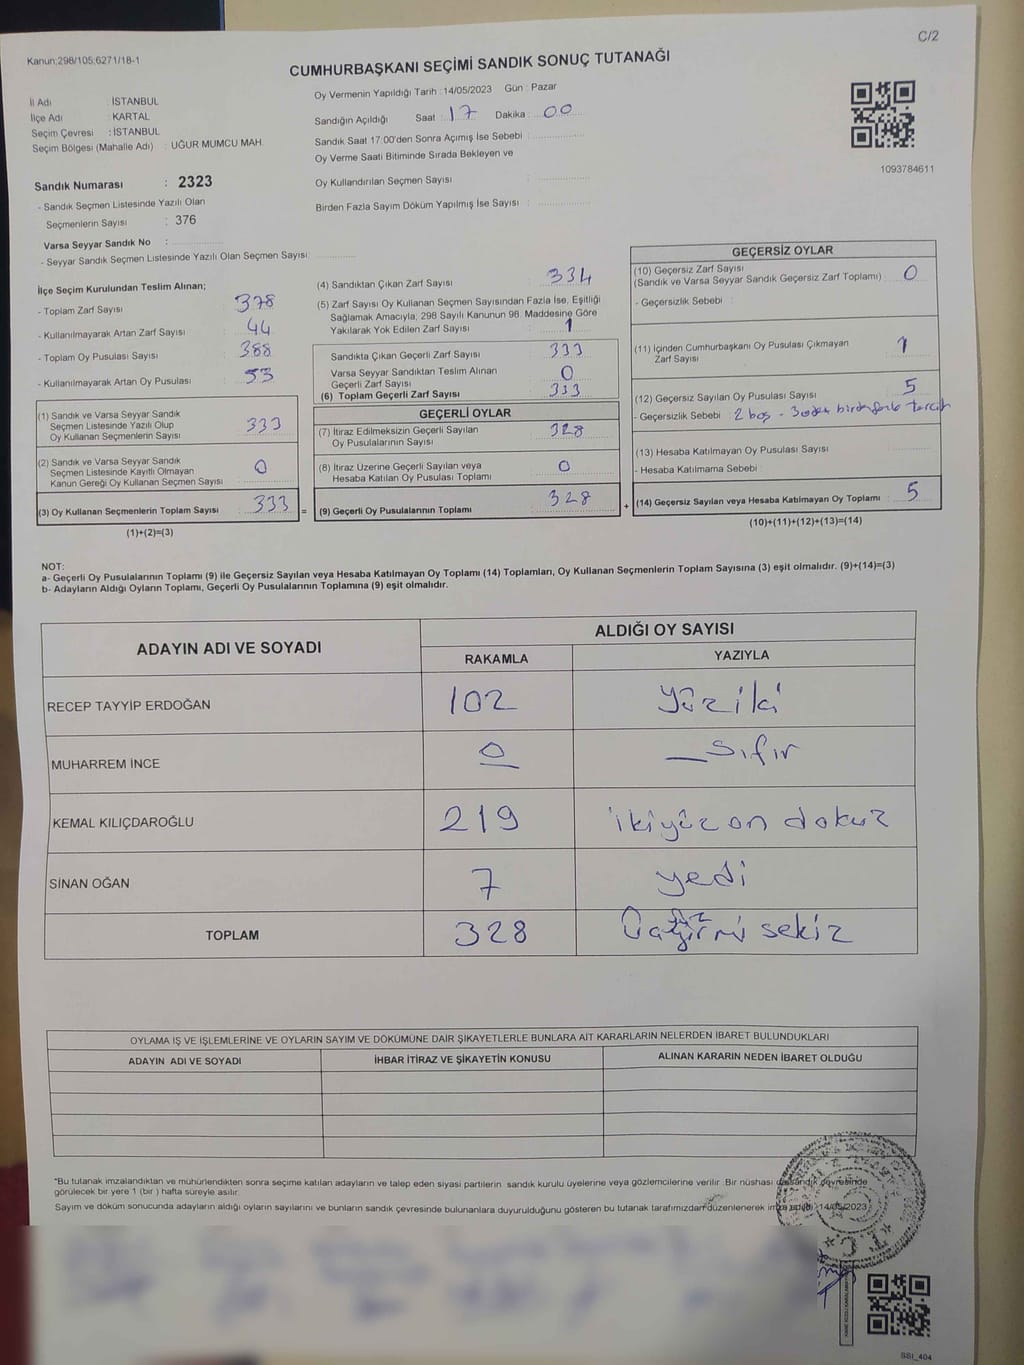 C/2
Kanun:298/105;6271/18-1
CUMHURBAŞKANI SEÇİMİ SANDIK SONUÇ TUTANAĞI
İl Adı : İSTANBUL
İlçe Adı : KARTAL
Seçim Çevresi : İSTANBUL
Seçim Bölgesi (Mahalle Adı) : UĞUR MUMCU MAH.
Sandık Numarası : 2323
- Sandık Seçmen Listesinde Yazılı Olan
Seçmenlerin Sayısı : 376
Varsa Seyyar Sandık No :
- Seyyar Sandık Seçmen Listesinde Yazılı Olan Seçmen Sayısı:
Oy Vermenin Yapıldığı Tarih :14/05/2023 Gün : Pazar
Sandığın Açıldığı Saat : 17 Dakika : 00
Sandık Saat 17:00'den Sonra Açımış İse Sebebi :
Oy Verme Saati Bitiminde Sırada Bekleyen ve
Oy Kullandırılan Seçmen Sayısı :
Birden Fazla Sayım Döküm Yapılmış İse Sayısı :
1093784611
İlçe Seçim Kurulundan Teslim Alınan;
- Toplam Zarf Sayısı : 378
- Kullanılmayarak Artan Zarf Sayısı : 44
- Toplam Oy Pusulası Sayısı : 388
- Kullanılmayarak Artan Oy Pusulası : 53
(1) Sandık ve Varsa Seyyar Sandık
Seçmen Listesinde Yazılı Olup
Oy Kullanan Seçmenlerin Sayısı : 333
(2) Sandık ve Varsa Seyyar Sandık
Seçmen Listesinde Kayıtlı Olmayan
Kanun Gereği Oy Kullanan Seçmen Sayısı : 0
(3) Oy Kullanan Seçmenlerin Toplam Sayısı : 333 =
(1)+(2)=(3)
(4) Sandıktan Çıkan Zarf Sayısı : 334
(5) Zarf Sayısı Oy Kullanan Seçmen Sayısından Fazla İse, Eşitliği
Sağlamak Amacıyla; 298 Sayılı Kanunun 98. Maddesine Göre
Yakılarak Yok Edilen Zarf Sayısı : 1
Sandıkta Çıkan Geçerli Zarf Sayısı : 333
Varsa Seyyar Sandıktan Teslim Alınan
Geçerli Zarf Sayısı : 0
(6) Toplam Geçerli Zarf Sayısı : 333
GEÇERLİ OYLAR
(7) İtiraz Edilmeksizin Geçerli Sayılan
Oy Pusulalarının Sayısı : 328
(8) İtiraz Üzerine Geçerli Sayılan veya
Hesaba Katılan Oy Pusulası Toplamı : 0
(9) Geçerli Oy Pusulalarının Toplamı : 328 +
GEÇERSİZ OYLAR
(10) Geçersiz Zarf Sayısı
(Sandık ve Varsa Seyyar Sandık Geçersiz Zarf Toplamı) : 0
- Geçersizlik Sebebi :
(11) İçinden Cumhurbaşkanı Oy Pusulası Çıkmayan
Zarf Sayısı : 1
(12) Geçersiz Sayılan Oy Pusulası Sayısı : 5
- Geçersizlik Sebebi : 2 boş - 3 birden fazla tercih
(13) Hesaba Katılmayan Oy Pusulası Sayısı :
- Hesaba Katılmama Sebebi :
(14) Geçersiz Sayılan veya Hesaba Katılmayan Oy Toplamı : 5
(10)+(11)+(12)+(13)=(14)
NOT:
a- Geçerli Oy Pusulalarının Toplamı (9) ile Geçersiz Sayılan veya Hesaba Katılmayan Oy Toplamı (14) Toplamları, Oy Kullanan Seçmenlerin Toplam Sayısına (3) eşit olmalıdır. (9)+(14)=(3)
b- Adayların Aldığı Oyların Toplamı, Geçerli Oy Pusulalarının Toplamına (9) eşit olmalıdır.
ADAYIN ADI VE SOYADI
ALDIĞI OY SAYISI
RAKAMLA YAZIYLA
RECEP TAYYİP ERDOĞAN 102 yüziki
MUHARREM İNCE 0 _sıfır
KEMAL KILIÇDAROĞLU 219 ikiyüz on dokuz
SİNAN OĞAN 7 yedi
TOPLAM 328 Üçyüz yirmi sekiz
OYLAMA İŞ VE İŞLEMLERİNE VE OYLARIN SAYIM VE DÖKÜMÜNE DAİR ŞİKAYETLERLE BUNLARA AİT KARARLARIN NELERDEN İBARET BULUNDUKLARI
ADAYIN ADI VE SOYADI İHBAR İTİRAZ VE ŞİKAYETİN KONUSU ALINAN KARARIN NEDEN İBARET OLDUĞU
*Bu tutanak imzalandıktan ve mühürlendikten sonra seçime katılan adayların ve talep eden siyasi partilerin sandık kurulu üyelerine veya gözlemcilerine verilir. Bir nüshası da sandık çevresinde
görülecek bir yere 1 (bir ) hafta süreyle asılır.
Sayım ve döküm sonucunda adayların aldığı oyların sayılarını ve bunların sandık çevresinde bulunanlara duyurulduğunu gösteren bu tutanak tarafımızdan düzenlenerek imza edildi. 14/05/2023
T.C.
SSI_404